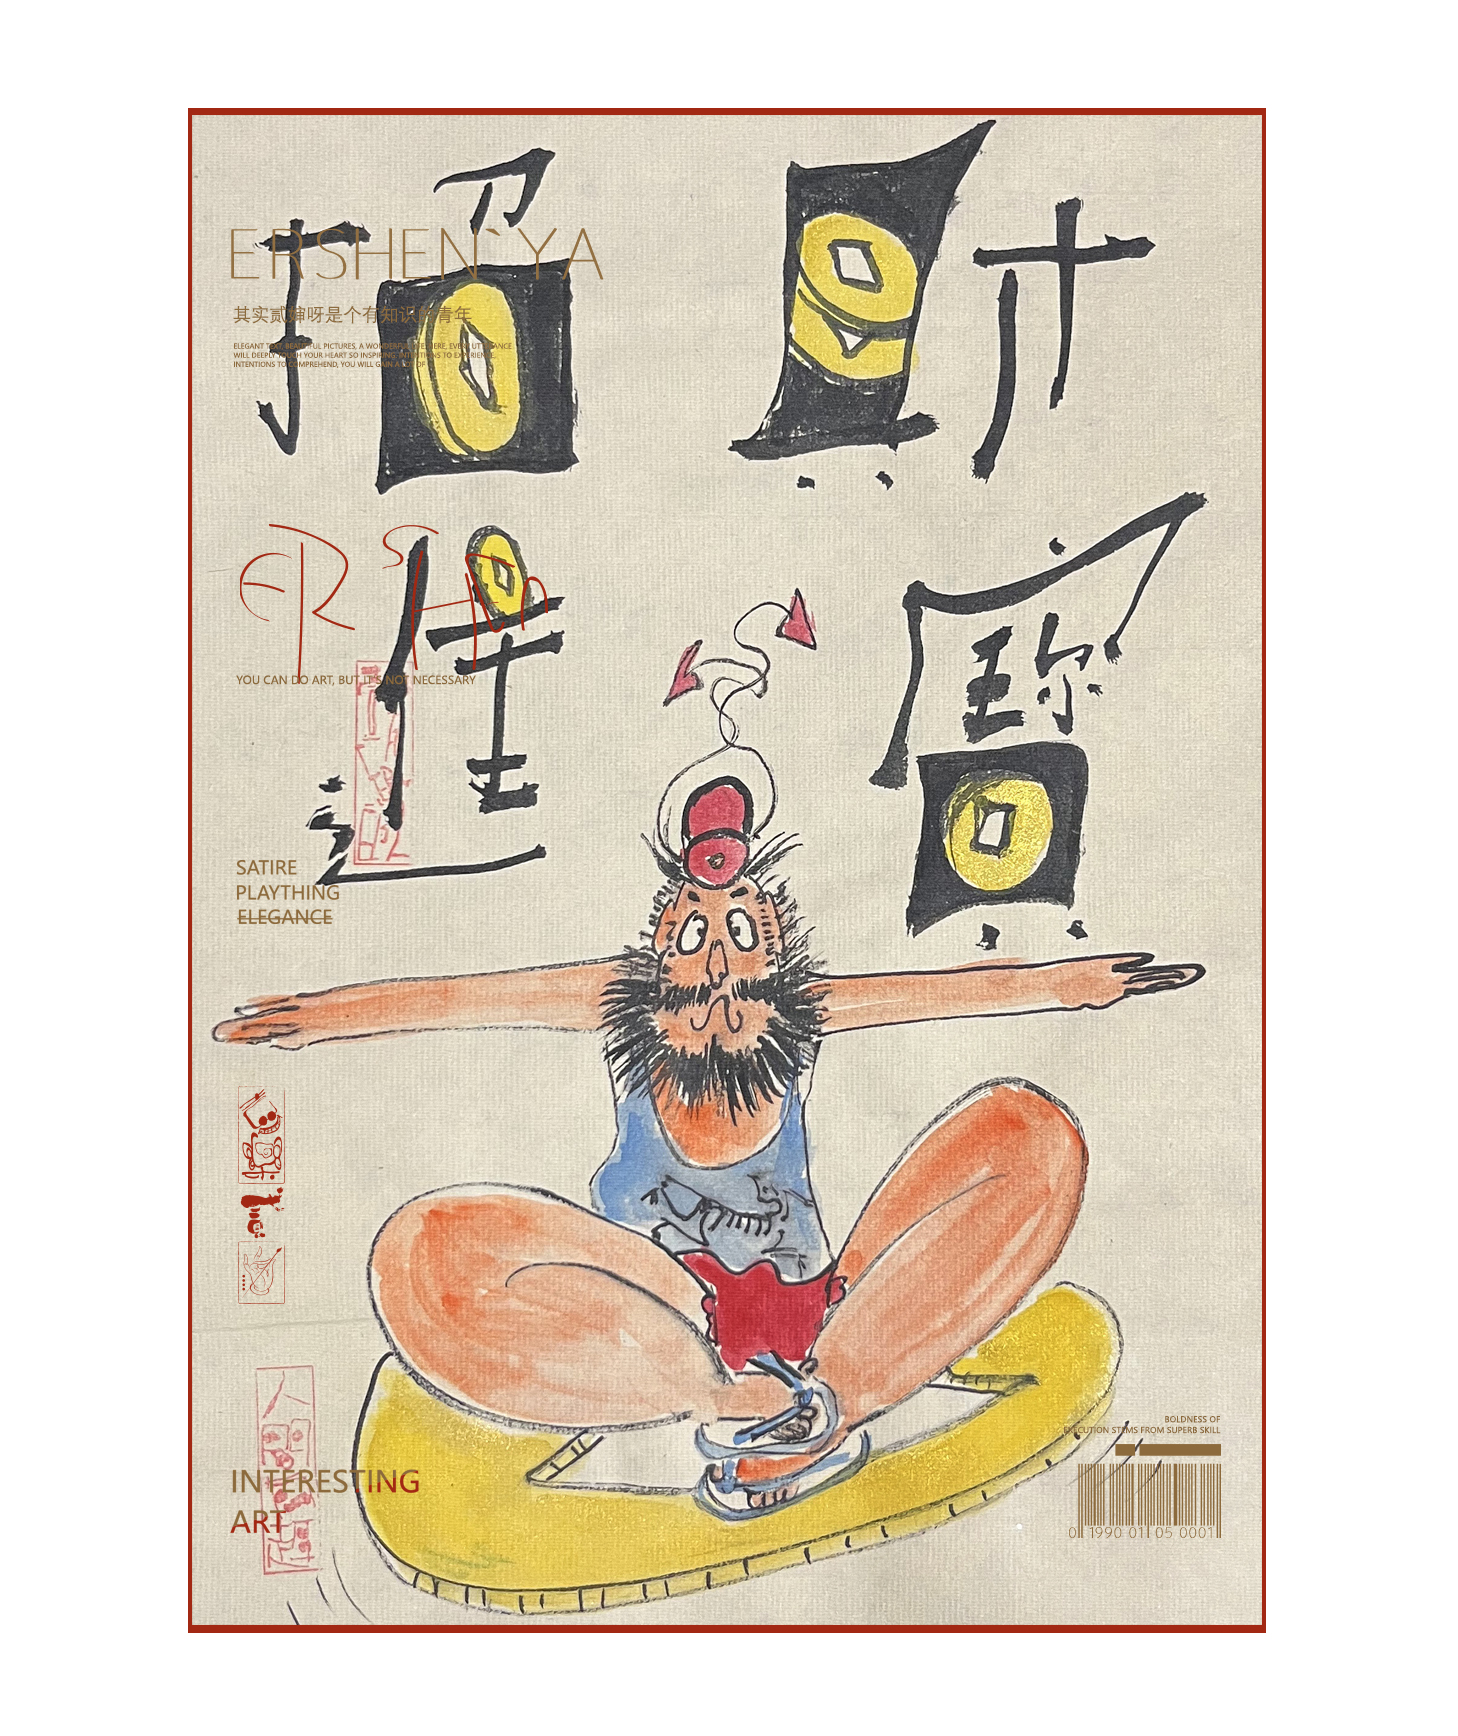 招財
進寶
ERSHEN`YA
其实贰婶呀是个有知识的青年
ELEGANT TEXT, BEAUTIFUL PICTURES, A WONDERFUL
WILL DEEPLY TOUCH YOUR HEART SO INSPIRING INTENTIONS TO EXPERIENCE.
INTENTIONS TO COMPREHEND, YOU WILL GAIN A
ER SHEn
YOU CAN DO ART, BUT IT'S NOT NECESSARY
SATIRE
PLAYTHING
ELEGANCE
INTERESTING
ART
BOLDNESS OF
EXECUTION STEMS FROM SUPERB SKILL
0 1990 01 05 0001